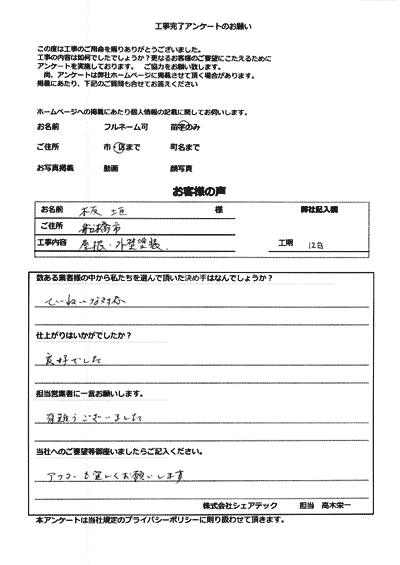 工事完了アンケートのお願い
この度は工事のご用命を賜りありがとうございました。
工事の内容は如何でしたでしょうか?更なるお客様のご要望にこたえるために
アンケートを実施しております。 ご協力をお願い致します。
尚、アンケートは弊社ホームページに掲載させて頂く場合があります。
掲載にあたり、下記のご質問も合せてお答えください
ホームページへの掲載にあたり個人情報の記載に関してお伺いします。
お名前 フルネーム可 苗字のみ
ご住所 市・区まで 町名まで
お写真掲載 動画 顔写真
お客様の声
お名前 板垣 様 弊社記入欄
ご住所 船橋市
工事内容 屋根・外壁塗装 工期 12日
数ある業者様の中から私たちを選んで頂いた決め手はなんでしょうか?
ていねいな対応
仕上がりはいかがでしたか?
良好でした
担当営業者に一言お願いします。
有難うございました
当社へのご要望等御座いましたらご記入ください。
アフターも宜しくお願いします
株式会社シェアテック 担当 高木栄一
本アンケートは当社規定のプライバシーポリシーに則り扱わせて頂きます。